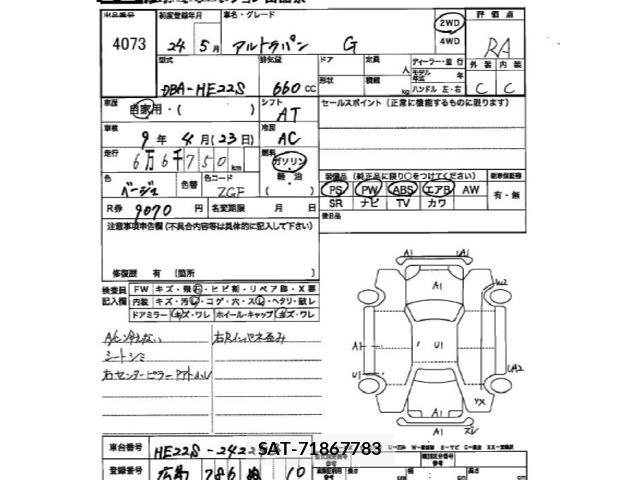 出品番号 初度登録年月 車名・グレード 2WD 評価点
4073 24年5月 アルトラパン G 4WD RA
型式 排気量 ドア 定員 人 ディーラー・並行 外装 内装
DBA-HE22S 660cc 形状 積載 kg モデル年式 年 ハンドル 左・右 C C
車歴 自家用・( ) シフト AT セールスポイント (正常に機能するものに限ります)
車検 9年4月(23日) 冷房 AC
走行 66千750km 燃料 ガソリン
色 ベージュ 色替 色コード ZCF 軽油 ( )
装備品 (純正品に限り○をつけてください) 新車保証書
PS PW ABS エアB AW 有・無
SR ナビ TV カワ
R券 9070円 名変期限 月 日 後日品
注意事項申告欄 (不具合内容等は具体的に記入して下さい)
修復歴 有 [箇所 ]
検査員記入欄 FW キズ・飛石・ヒビ割・リペア跡・X要
内装 キズ・汚れ・コゲ・穴・スレ・ヘタリ・破レ
ドアミラー キズ・ワレ ホイール・キャップ キズ・ワレ
A/C冷えない 右Rインパネ歪み
シートシミ
右センターピラー
A1 A1
A1 W2
A1 U1
U1 UA2
A1 YX
A1
車台番号 HE22S-242
SAT-71867783
登録番号 広島 786 10